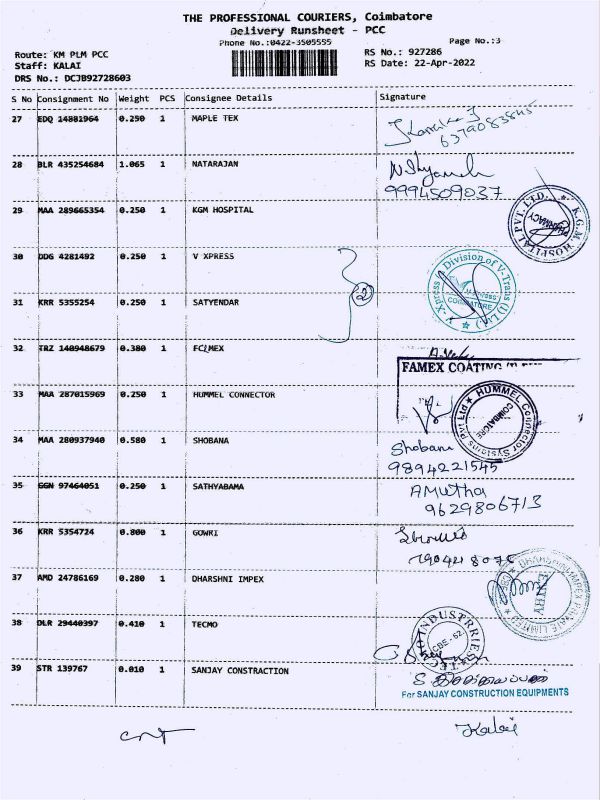 THE PROFESSIONAL COURIERS, Coimbatore
Delivery Runsheet - PCC
Phone No.:0422-3505555
Page No.:3
Route: KM PLM PCC
RS No.: 927286
Staff: KALAI
RS Date: 22-Apr-2022
DRS No.: DCJB92728603
S No Consignment No Weight PCS Consignee Details Signature
27 EDQ 14881964 0.250 1 MAPLE TEX
6379083845
28 BLR 435254684 1.065 1 NATARAJAN
9994509037
29 MAA 289665354 0.250 1 KGM HOSPITAL
K.G.M. HOSPITAL PVT. LTD.
PHARMACY
30 DDG 4281492 0.250 1 V XPRESS
V-Xpress (A Division of V-Trans (I) Ltd.)
COIMBATORE
31 KRR 5355254 0.250 1 SATYENDAR
2
32 TRZ 140948679 0.380 1 FCLMEX
FAMEX COATING
33 MAA 287015969 0.250 1 HUMMEL CONNECTOR
HUMMEL Connector Systems Pvt Ltd
COIMBATORE
34 MAA 280937940 0.580 1 SHOBANA
Shobana
9894221545
35 GGN 97464051 0.250 1 SATHYABAMA
AMutha
9629806713
36 KRR 5354724 0.800 1 GOWRI
37 AMD 24786169 0.280 1 DHARSHNI IMPEX
DHARSHNI IMPEX PRIVATE LIMITED
ENTRY
38 DLR 29440397 0.410 1 TECMO
INDUSTRIES
CBE - 62
39 STR 139767 0.010 1 SANJAY CONSTRACTION
For SANJAY CONSTRUCTION EQUIPMENTS
Kalai